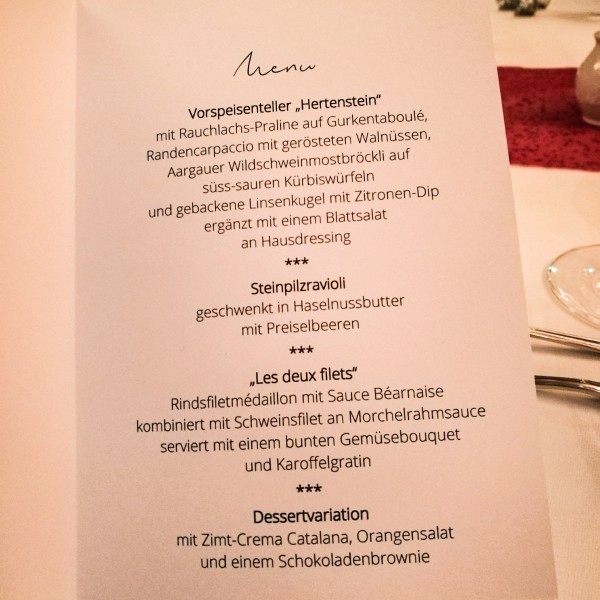 Menu
Vorspeisenteller „Hertenstein“
mit Rauchlachs-Praline auf Gurkentaboulé,
Randencarpaccio mit gerösteten Walnüssen,
Aargauer Wildschweinmostbröckli auf
süss-sauren Kürbiswürfeln
und gebackene Linsenkugel mit Zitronen-Dip
ergänzt mit einem Blattsalat
an Hausdressing
***
Steinpilzravioli
geschwenkt in Haselnussbutter
mit Preiselbeeren
***
„Les deux filets“
Rindsfiletmédaillon mit Sauce Béarnaise
kombiniert mit Schweinsfilet an Morchelrahmsauce
serviert mit einem bunten Gemüsebouquet
und Karoffelgratin
***
Dessertvariation
mit Zimt-Crema Catalana, Orangensalat
und einem Schokoladenbrownie